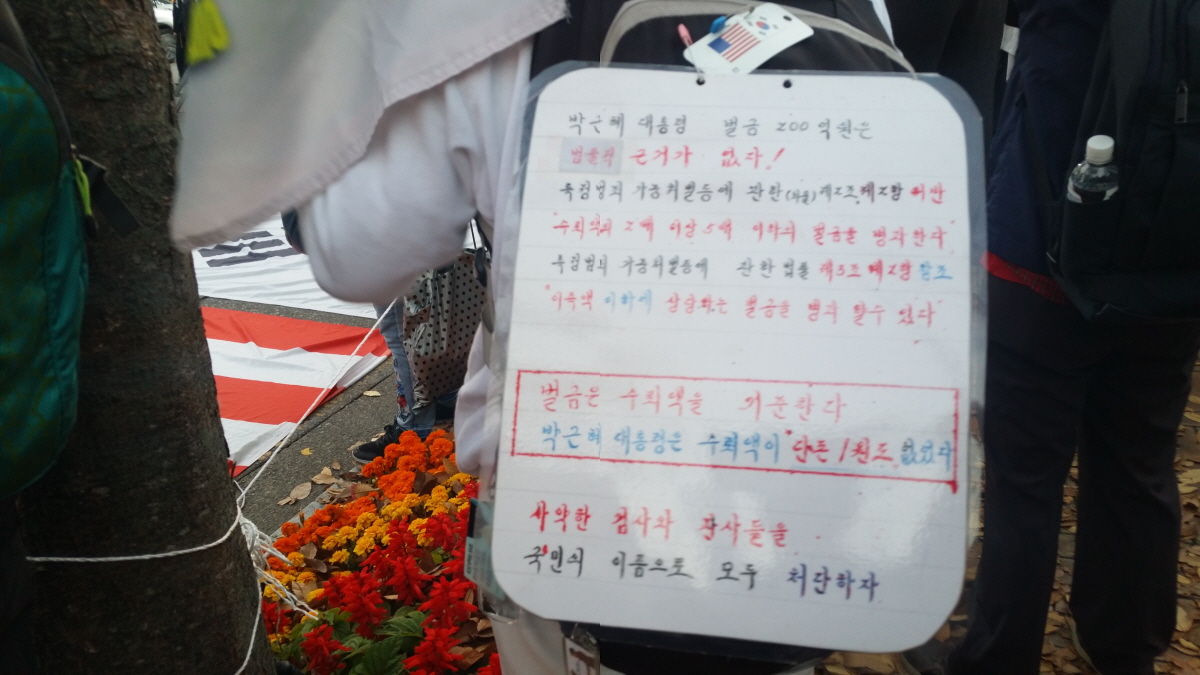 박근혜 대통령 벌금 200억원은
법률적 근거가 없다!
특정범죄 가중처벌등에 관한(법률)제2조제2항 위반
"수뢰액의 2배 이상 5배 이하의 벌금을 병과한다"
특정범죄 가중처벌등에 관한 법률 제3조 제2항 참조
"이득액 이하에 상당하는 벌금을 병과 할수 있다"
벌금은 수뢰액을 기준한다
박근혜 대통령은 수뢰액이 "단돈 1원도 없었다
사악한 검사와 판사들을
국민의 이름으로 모두 처단하자